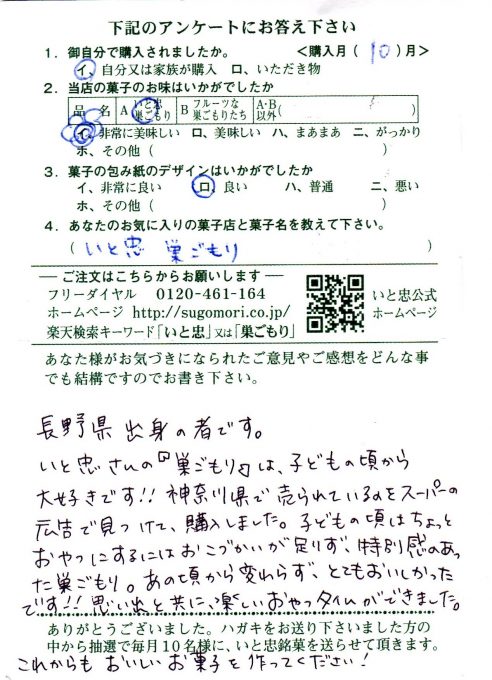 下記のアンケートにお答え下さい
1．御自分で購入されましたか。　＜購入月（10）月＞
イ、自分又は家族が購入　ロ、いただき物
2．当店の菓子のお味はいかがでしたか
品　名　A　いと忠巣ごもり　B　フルーツな巣ごもりたち　A・B以外（　　　）
イ、非常に美味しい　ロ、美味しい　ハ、まあまあ　ニ、がっかり
ホ、その他（　　　）
3．菓子の包み紙のデザインはいかがでしたか
イ、非常に良い　ロ、良い　ハ、普通　ニ、悪い
ホ、その他（　　　）
4．あなたのお気に入りの菓子店と菓子名を教えて下さい。
（いと忠　巣ごもり　　　）
― ご注文はこちらからお願いします ―
フリーダイヤル　0120-461-164
ホームページ　http://sugomori.co.jp/
楽天検索キーワード「いと忠」又は「巣ごもり」
いと忠公式
ホームページ
あなた様がお気づきになられたご意見やご感想をどんな事
でも結構ですのでお書き下さい。
長野県出身の者です。
いと忠さんの『巣ごもり』は、子どもの頃から
大好きです!! 神奈川県で売られているのをスーパーの
広告で見つけて、購入しました。子どもの頃はちょっと
おやつにするにはおこづかいが足りず、特別感のあっ
た巣ごもり。あの頃から変わらず、とてもおいしかった
です!! 思い出と共に、楽しいおやつタイムができました。
ありがとうございました。ハガキをお送り下さいました方の
中から抽選で毎月10名様に、いと忠銘菓を送らせて頂きます。
これからもおいしいお菓子を作ってください!